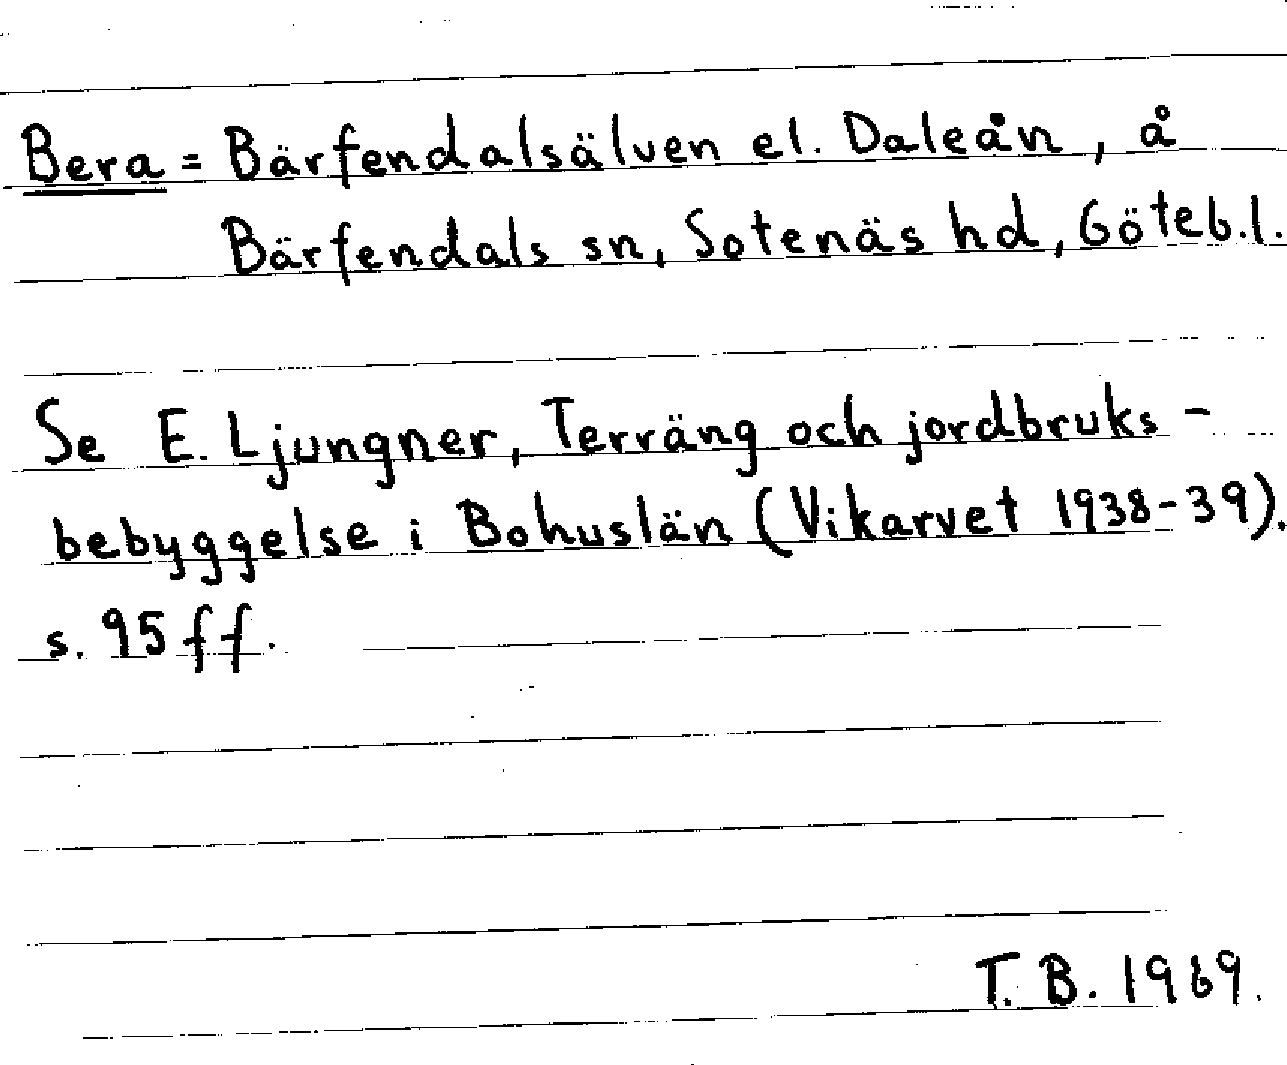 Bera = Bärfendalsälven el. Daleån, å
Bärfendals sn, Sotenäs hd, Göteb.l.
Se E. Ljungner, Terräng och jordbruks-
bebyggelse i Bohuslän (Vikarvet 1938-39).
s. 95 ff.
T. B. 1969.